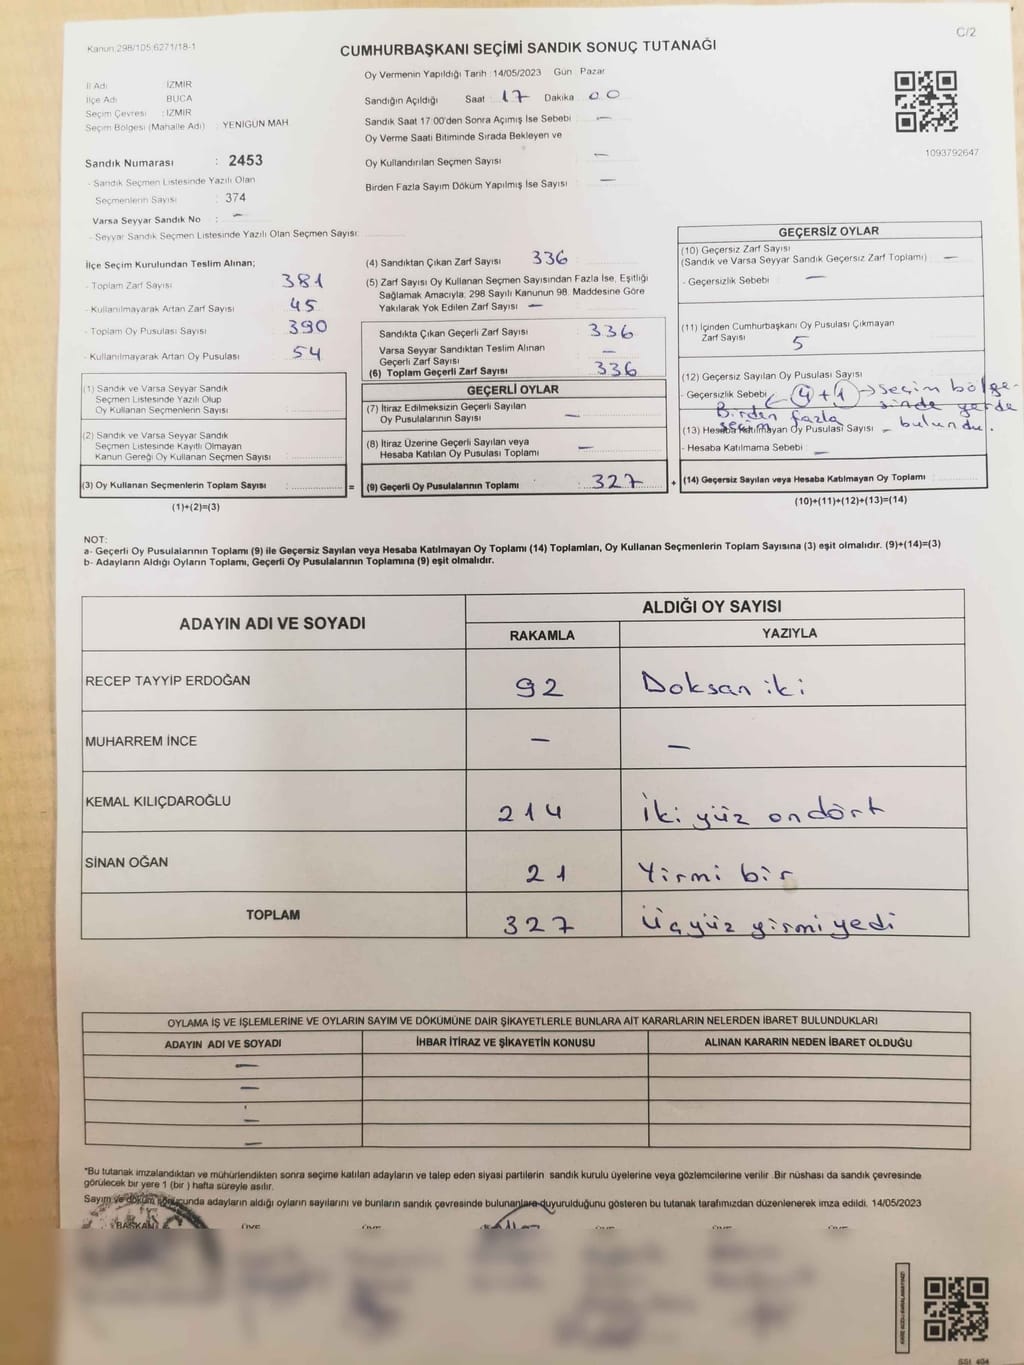 Kanun:298/105;6271/18-1
C/2
CUMHURBAŞKANI SEÇİMİ SANDIK SONUÇ TUTANAĞI
İl Adı : İZMİR
İlçe Adı : BUCA
Seçim Çevresi : İZMİR
Seçim Bölgesi (Mahalle Adı) : YENİGÜN MAH.
Sandık Numarası : 2453
- Sandık Seçmen Listesinde Yazılı Olan
Seçmenlerin Sayısı : 374
Varsa Seyyar Sandık No : -
- Seyyar Sandık Seçmen Listesinde Yazılı Olan Seçmen Sayısı:
Oy Vermenin Yapıldığı Tarih :14/05/2023 Gün Pazar
Sandığın Açıldığı Saat : 17 Dakika 00
Sandık Saat 17:00'den Sonra Açımış İse Sebebi : -
Oy Verme Saati Bitiminde Sırada Bekleyen ve
Oy Kullandırılan Seçmen Sayısı : -
Birden Fazla Sayım Döküm Yapılmış İse Sayısı : -
1093792647
İlçe Seçim Kurulundan Teslim Alınan;
- Toplam Zarf Sayısı : 381
- Kullanılmayarak Artan Zarf Sayısı : 45
- Toplam Oy Pusulası Sayısı : 390
- Kullanılmayarak Artan Oy Pusulası : 54
(1) Sandık ve Varsa Seyyar Sandık
Seçmen Listesinde Yazılı Olup
Oy Kullanan Seçmenlerin Sayısı :
(2) Sandık ve Varsa Seyyar Sandık
Seçmen Listesinde Kayıtlı Olmayan
Kanun Gereği Oy Kullanan Seçmen Sayısı :
(3) Oy Kullanan Seçmenlerin Toplam Sayısı :
(1)+(2)=(3)
(4) Sandıktan Çıkan Zarf Sayısı : 336
(5) Zarf Sayısı Oy Kullanan Seçmen Sayısından Fazla İse, Eşitliği
Sağlamak Amacıyla; 298 Sayılı Kanunun 98. Maddesine Göre
Yakılarak Yok Edilen Zarf Sayısı : -
Sandıkta Çıkan Geçerli Zarf Sayısı : 336
Varsa Seyyar Sandıktan Teslim Alınan
Geçerli Zarf Sayısı : -
(6) Toplam Geçerli Zarf Sayısı : 336
GEÇERLİ OYLAR
(7) İtiraz Edilmeksizin Geçerli Sayılan
Oy Pusulalarının Sayısı : -
(8) İtiraz Üzerine Geçerli Sayılan veya
Hesaba Katılan Oy Pusulası Toplamı : -
= (9) Geçerli Oy Pusulalarının Toplamı : 327
GEÇERSİZ OYLAR
(10) Geçersiz Zarf Sayısı
(Sandık ve Varsa Seyyar Sandık Geçersiz Zarf Toplamı) : -
- Geçersizlik Sebebi : -
(11) İçinden Cumhurbaşkanı Oy Pusulası Çıkmayan
Zarf Sayısı : 5
(12) Geçersiz Sayılan Oy Pusulası Sayısı :
- Geçersizlik Sebebi : 4 + 1 → seçim bölge-
sinde yerde
bulundu.
Birden fazla
seçim
(13) Hesaba Katılmayan Oy Pusulası Sayısı : -
- Hesaba Katılmama Sebebi : -
+ (14) Geçersiz Sayılan veya Hesaba Katılmayan Oy Toplamı :
(10)+(11)+(12)+(13)=(14)
NOT:
a- Geçerli Oy Pusulalarının Toplamı (9) ile Geçersiz Sayılan veya Hesaba Katılmayan Oy Toplamı (14) Toplamları, Oy Kullanan Seçmenlerin Toplam Sayısına (3) eşit olmalıdır. (9)+(14)=(3)
b- Adayların Aldığı Oyların Toplamı, Geçerli Oy Pusulalarının Toplamına (9) eşit olmalıdır.
ADAYIN ADI VE SOYADI
ALDIĞI OY SAYISI
RAKAMLA YAZIYLA
RECEP TAYYİP ERDOĞAN 92 Doksan iki
MUHARREM İNCE - -
KEMAL KILIÇDAROĞLU 214 İki yüz ondört
SİNAN OĞAN 21 Yirmi bir
TOPLAM 327 Üçyüz yirmi yedi
OYLAMA İŞ VE İŞLEMLERİNE VE OYLARIN SAYIM VE DÖKÜMÜNE DAİR ŞİKAYETLERLE BUNLARA AİT KARARLARIN NELERDEN İBARET BULUNDUKLARI
ADAYIN ADI VE SOYADI İHBAR İTİRAZ VE ŞİKAYETİN KONUSU ALINAN KARARIN NEDEN İBARET OLDUĞU
-
-
-
-
*Bu tutanak imzalandıktan ve mühürlendikten sonra seçime katılan adayların ve talep eden siyasi partilerin sandık kurulu üyelerine veya gözlemcilerine verilir. Bir nüshası da sandık çevresinde
görülecek bir yere 1 (bir) hafta süreyle asılır.
Sayım ve döküm sonucunda adayların aldığı oyların sayılarını ve bunların sandık çevresinde bulunanlara duyurulduğunu gösteren bu tutanak tarafımızdan düzenlenerek imza edildi. 14/05/2023
BAŞKAN ÜYE ÜYE ÜYE ÜYE